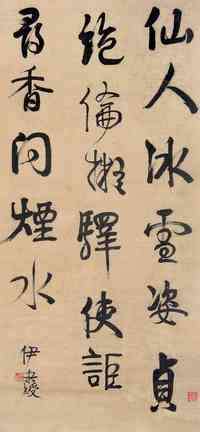 仙人冰雪姿貞
絕倫擬驛使詎
尋香問煙水
伊秉綬